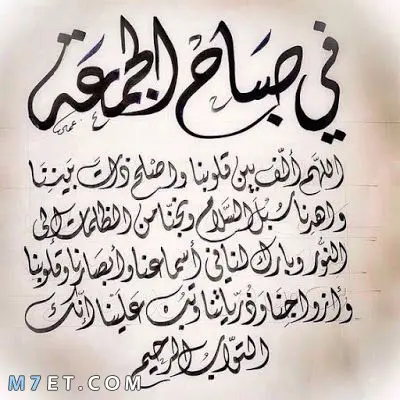 في صباح الجمعة
اللهم ألّف بين قلوبنا وأصلح ذات بيننا
واهدنا سبل السّلام ونجّنا من الظلمات إلى
النّور وبارك لنا في أسماعنا وأبصارنا وقلوبنا
وأزواجنا وذرياتنا وتب علينا إنّك
التوّاب الرحيم
M7ET.COM